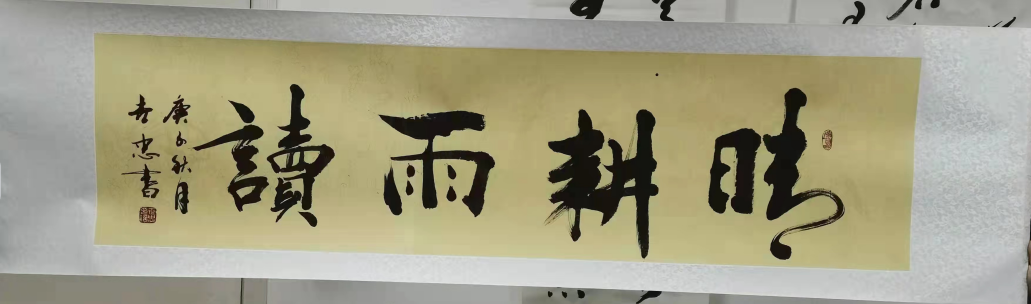 晴耕雨讀
庚子秋月
忠書